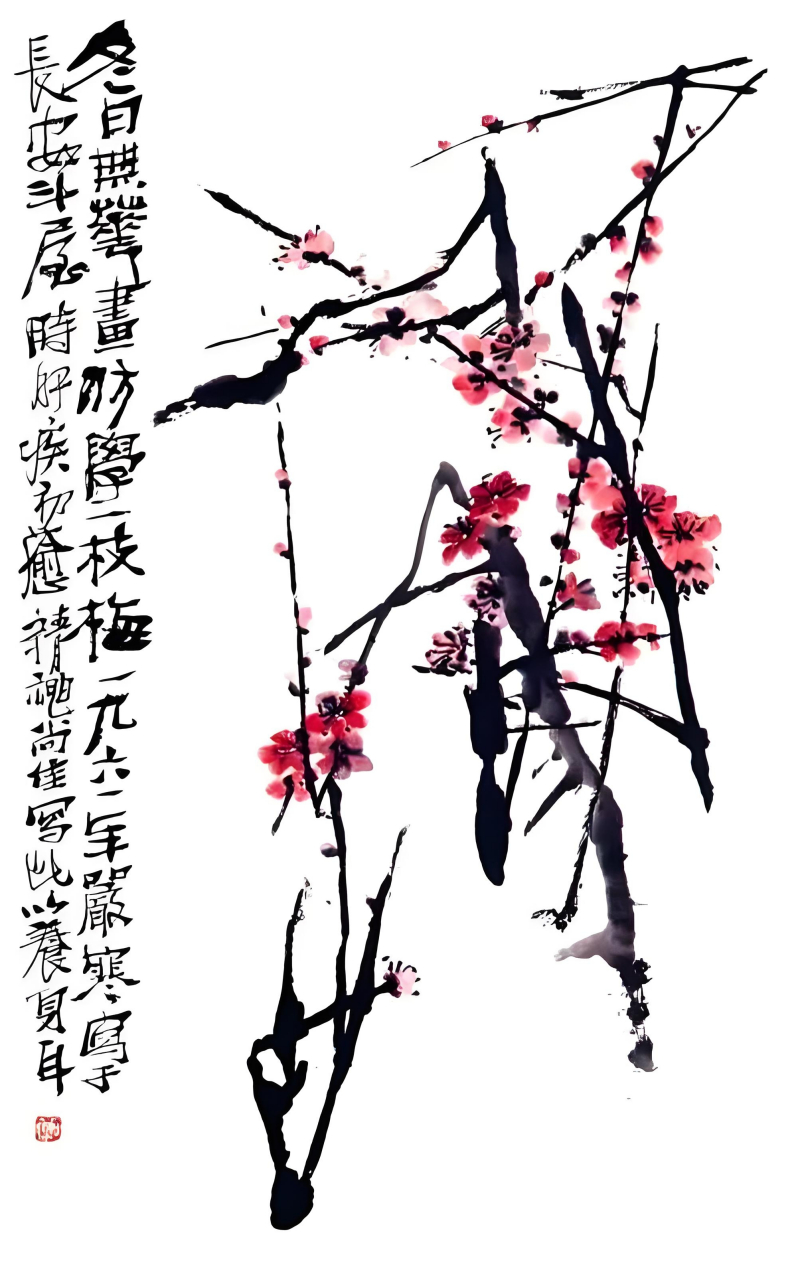 冬日無華畫昉學一枝梅一九六一年嚴寒寫于
長安斗屋時肝疾初癒精神尚佳寫此以養身耳